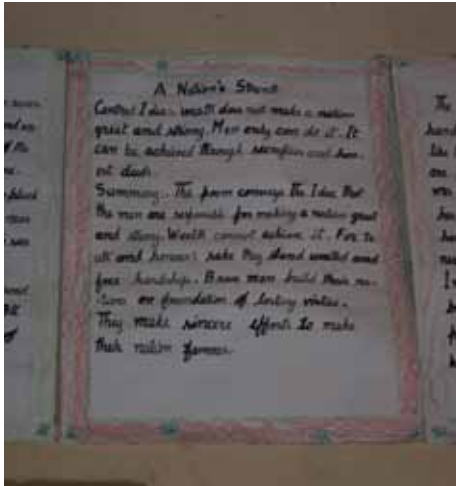 A Nation's Strength
Central Idea: wealth does not make a nation
great and strong. Men only can do it. It
can be achieved through sacrifice and hon-
est deeds.
Summary. The poem conveys the Idea that
the men are responsible for making a nation great
and strong. Wealth cannot achieve it. For tr
uth and honour's sake they stand united and
face hardship. Brave men build their na-
tions on foundation of lasting virtue.
They make sincere efforts to make
their nation famous.
The